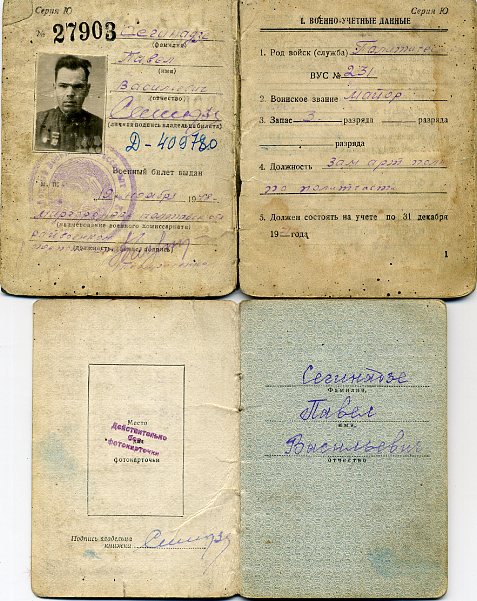 Серия Ю
№ 27903
Сегинадзе
(фамилия)
Павел
(имя)
Васильевич
(отчество)
(личная подпись владельца билета)
Д-409780
Военный билет выдан
М. П.
19 ноября 19
Миргородским Полтавской
(наименование военного комиссариата)
районным
(должность, подпись)
Серия Ю
I. ВОЕННО-УЧЕТНЫЕ ДАННЫЕ
1. Род войск (служба) Политсостав
ВУС № 231
2. Воинское звание майор
3. Запас 3 разряда разряда
разряда
4. Должность зам арт пол
по политчасти
5. Должен состоять на учете по 31 декабря
19 года.
1
Место
для
фотокарточки
Действительно
без
фотокарточки
Подпись владельца
книжки
Сегинадзе
Фамилия,
Павел
имя,
Васильевич
отчество